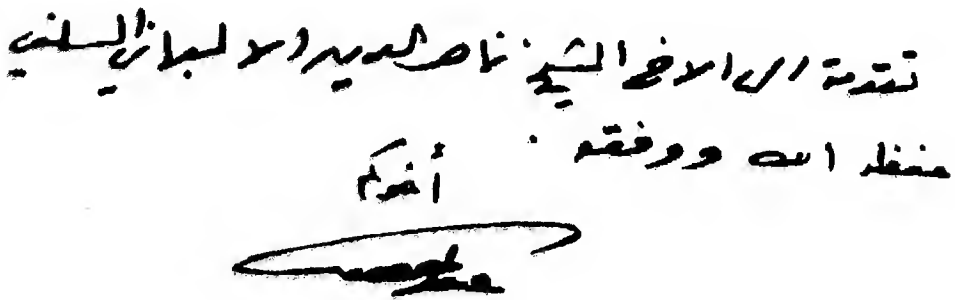 تقدمة إلى الأخ الشيخ ناصر الدين الألباني السلفي
حفظه الله ووفقه .
أخوكم